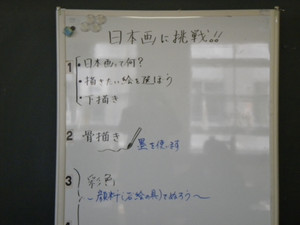 日本画に挑戦!!
1 ・日本画って何?
・描きたい絵を選ぼう
・下描き
2 骨描き
墨を使用
3 彩色
~顔料(石絵の具)で塗ろう~